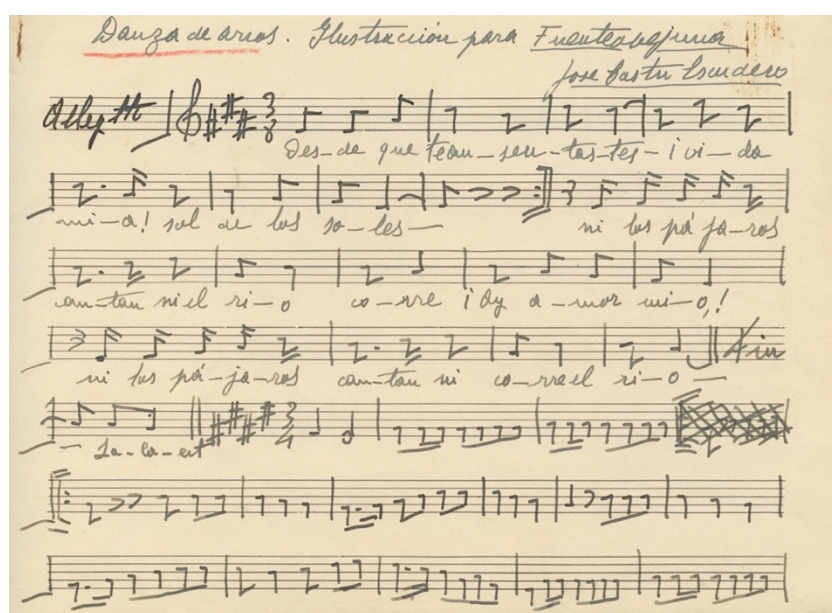 Danza de arcos. Ilustración para Fuenteovejuna
Jose Castro Escudero
Alleg tto
3 8
Des-de que team-sen-tas-tes-¡vi-da
mi-a! sol de los so-les- ni los pá ja-ros
can-tan ni el ri-o co-rre ¡Ay a-mor mi-o,!
ni los pá-ja-ros can-tan ni co-rre el ri-o - Fin
3 4
- La-la-